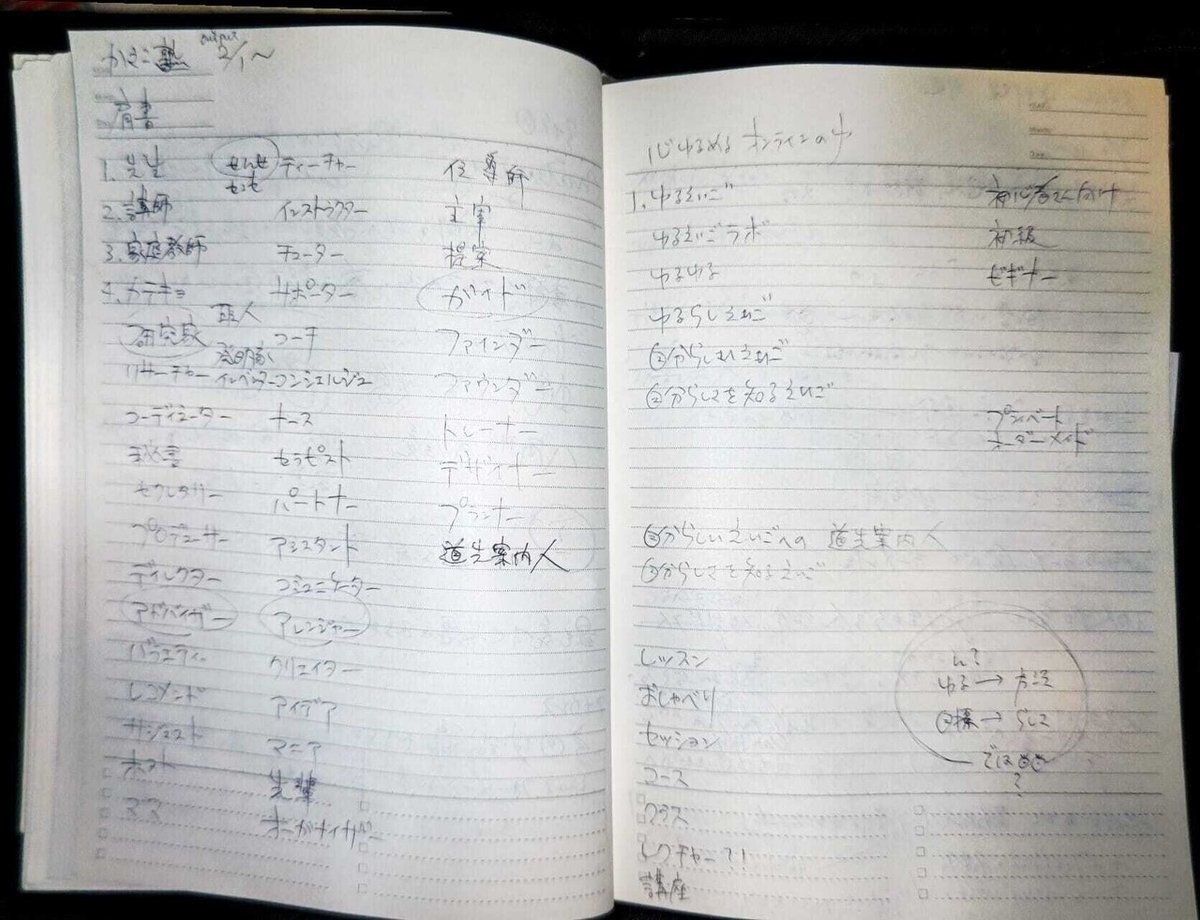 output
かほこ塾 2/1〜
肩書
1. 先生 せんせ ティーチャー 伝導師
2. 講師 インストラクター 主宰
3. 家庭教師 チューター 提案
4. カテキョ サポーター ガイド
研究家 コーチ ファインダー
リサーチャー コンシェルジュ ファウンダー
コーディネーター ナース トレーナー
秘書 セラピスト デザイナー
セクレタリー パートナー プランナー
プロデューサー アシスタント 道先案内人
ディレクター コミュニケーター
アドバイザー アレンジャー
バラエティー クリエイター
レコメンド アイデア
サジェスト マニア
ホスト 先輩
ママ オーガナイザー
心ゆるめるオンラインの
1. ゆるえいご 初心者さん向け
ゆるえいごラボ 初級
ゆるゆる ビギナー
ゆるらしえいご
からしいえいご
からしさを知るえいご
プライベート
オーダーメイド
からしいえいごへの 道先案内人
からしさを知るえいご
レッスン
おしゃべり
セッション
コース
クラス
レクチャー?!
講座
ん?
ゆる → 方法
目標 → らしさ
では
?